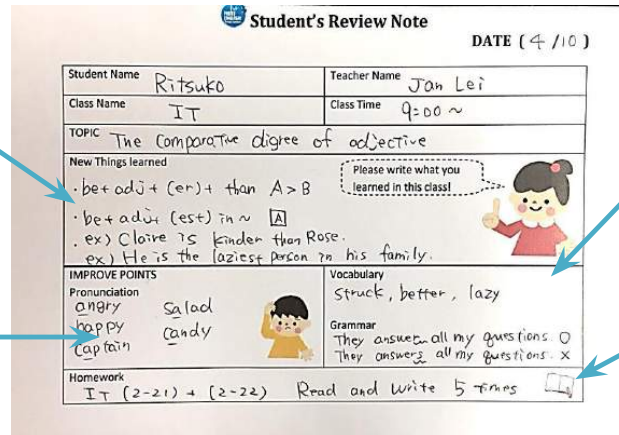 Student's Review Note
DATE ( 4 /10 )
Student Name Ritsuko
Teacher Name Jan Lei
Class Name IT
Class Time 9:00 ~
TOPIC The comparative digree of adjective
New Things learned
Please write what you
learned in this class!
· be + adj + (er) + than A > B
· be + adj + (est) in ~ A
· ex) Claire is kinder than Rose.
ex) He is the laziest person in his family.
IMPROVE POINTS
Pronunciation
angry salad
happy candy
captain
Vocabulary
struck, better, lazy
Grammar
They answer all my questions. O
They answers all my questions. X
Homework
IT (2-21) + (2-22) Read and write 5 times